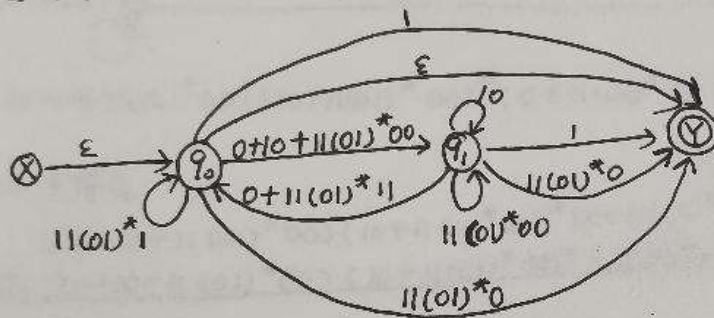 1
ε
10
ε
0+10+11(01)*00
1
X
q0
q1
Y
0+11(01)*11
11(01)*0
11(01)*1
11(01)*00
11(01)*0